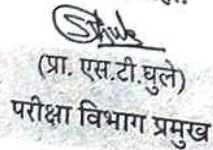 (प्रा. एस.टी.घुले)
परीक्षा विभाग प्रमुख